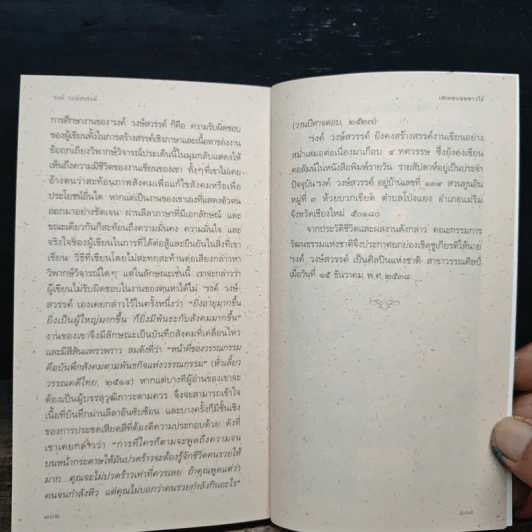 'รงค์ วงษ์สวรรค์
การศึกษางานของ 'รงค์ วงษ์สวรรค์ ก็คือ ความรับผิดชอบ
ของผู้เขียนทั้งในการสร้างสรรค์เชิงภาษาและเนื้อหาของงาน
ข้อถกเถียงวิพากษ์วิจารณ์ประเด็นนี้ในมุมกลับแสดงให้
เห็นถึงความมีชีวิตของงานเขียนของเขา ทั้งๆ ที่เขาไม่เคย
อ้างตนว่าสะท้อนภาพสังคมเพื่อแก้ไขสังคมหรือเพื่อ
ประโยชน์อื่นใด หากแต่เป็นงานของเขาเองที่แสดงตัวตน
ออกมาอย่างชัดเจน ผ่านลีลาภาษาที่มีเอกลักษณ์ และ
ขณะเดียวกันก็สะท้อนถึงความมั่นคง ความมั่นใจ และ
จริงใจของผู้เขียนในการที่ได้ต่อสู้และยืนยันในสิ่งที่เขา
เขียน วิธีที่เขียนโดยไม่สะทกสะท้านต่อเสียงกล่าวหา
วิพากษ์วิจารณ์ใดๆ แต่ในลักษณะเช่นนี้ เราจะกล่าวว่า
ผู้เขียนไม่รับผิดชอบในงานของตนหาได้ไม่ 'รงค์ วงษ์-
สวรรค์ เองเคยกล่าวไว้ในครั้งหนึ่งว่า "ยิ่งอายุมากขึ้น
ยิ่งเป็นผู้ใหญ่มากขึ้น ก็ยิ่งมีพันธะกับสังคมมากขึ้น"
งานของเขาจึงมีลักษณะเป็นบันทึกสังคมที่เคลื่อนไหว
และมีสีสันแพรวพราว สมดังที่ว่า "หน้าที่ของวรรณกรรม
คือบันทึกสังคมตามพันธกิจแห่งวรรณกรรม" (หัวเลี้ยว
วรรณคดีไทย, ๒๕๑๔) หากแต่บางทีผู้อ่านของเขาจะ
ต้องเป็นผู้บรรลุวุฒิภาวะตามควร จึงจะสามารถเข้าใจ
เนื้อที่บันทึกผ่านลีลาอันซับซ้อน และบางครั้งก็มีชั้นเชิง
ของการประชดเสียดสีที่ต้องตีความประกอบด้วย ดังที่
เขาเคยกล่าวว่า "การที่ใครก็ตามจะพูดถึงความจน
บนหน้ากระดาษให้มันปวดร้าวจะต้องรู้จักชีวิตคนรวยให้
มาก...คุณจะไม่ปวดร้าวเท่าที่ควรเลย ถ้าคุณพูดแต่ว่า
คนจนกำลังหิว แต่คุณไม่บอกว่าคนรวยกำลังกินอะไร"
๓๐๒
เสเพลบอยชาวไร่
(วานปีศาจตอบ, ๒๕๒๗)
'รงค์ วงษ์สวรรค์ ยังคงสร้างสรรค์งานเขียนอย่าง
สม่ำเสมอต่อเนื่องมาเกือบ ๔ ทศวรรษ ซึ่งยังคงเขียน
คอลัมน์ในหนังสือพิมพ์รายวัน รายสัปดาห์อยู่เป็นประจำ
ปัจจุบัน 'รงค์ วงษ์สวรรค์ อยู่บ้านเลขที่ ๑๓๙ สวนทูนอิน
หมู่ที่ ๓ ห้วยบวกเขียด ตำบลโป่งแยง อำเภอแม่ริม
จังหวัดเชียงใหม่ ๕๐๑๘๐
จากประวัติชีวิตและผลงานดังกล่าว คณะกรรมการ
วัฒนธรรมแห่งชาติจึงประกาศยกย่องเชิดชูเกียรติให้นาย
'รงค์ วงษ์สวรรค์ เป็นศิลปินแห่งชาติ สาขาวรรณศิลป์
เมื่อวันที่ ๑๕ ธันวาคม พ.ศ. ๒๕๓๘
๓๐๓